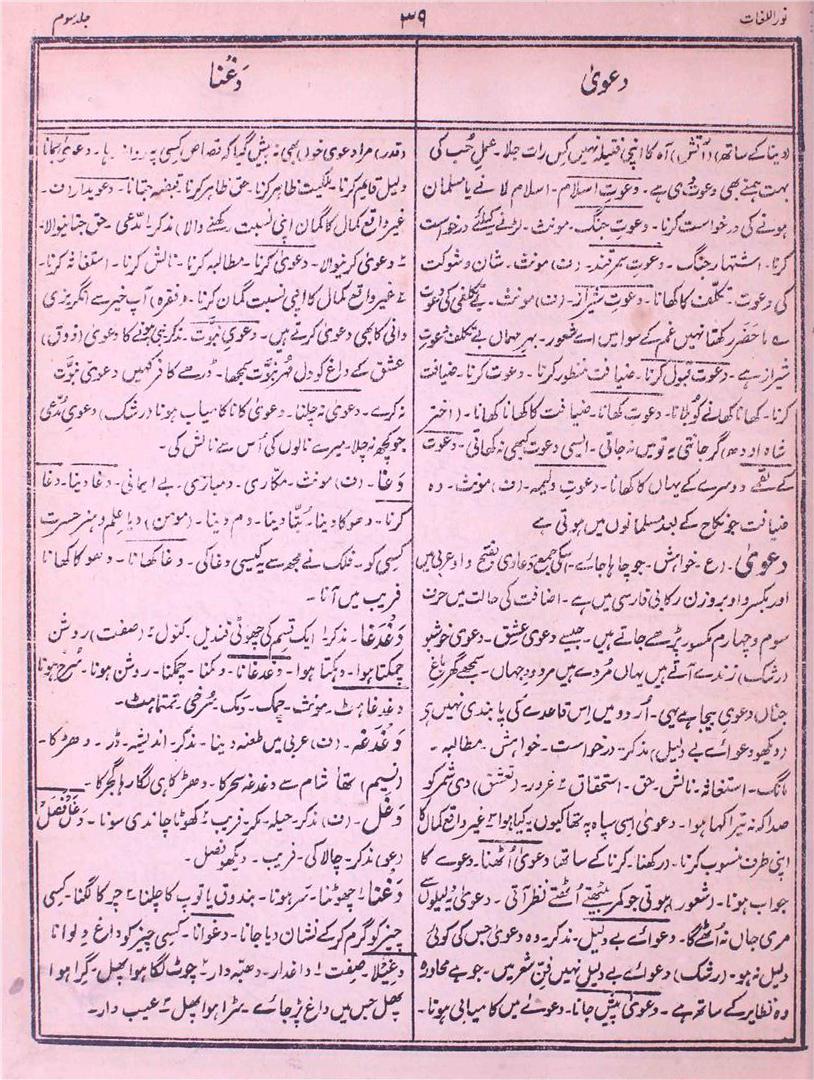 نور اللغات
۳۹
جلد سوم
دعویٰ
دَغُنا
(دینا کے ساتھ) (آتش) آہ کا اپنی فتیلہ نہیں کس رات جلا۔ عملِ حُب کی
بہت ہمنے بھی دعوت دی ہے۔ دعوتِ اسلام۔ اسلام لانے یا مسلمان
ہونے کی درخواست کرنا۔ دعوتِ جنگ۔ مونث۔ لڑنے کیلئے درخواست
کرنا۔ اشتہار جنگ۔ دعوتِ سمرقند۔ (ن) مونث۔ شان و شوکت
کی دعوت۔ تکلف کا کھانا۔ دعوتِ شیراز۔ (ن) مونث۔ بے تکلفی کی دعوت
ے ماحَضَر رکھتا نہیں غم کے سوا میں اے شعور۔ بہر مہماں بے تکلف دعوتِ
شیراز ہے۔ دعوت قبول کرنا۔ ضیافت منظور کرنا۔ دعوت کرنا۔ ضیافت
کرنا۔ کھانا کھانے کو بُلانا۔ دعوت کھانا۔ ضیافت کا کھانا کھانا۔ (اختر
شاہ اودھ) گر جانتی یہ تو میں نہ جاتی۔ ایسی دعوت کبھی نہ کھاتی۔ دعوت
کے لقمے دوسرے کے یہاں کا کھانا۔ دعوتِ ولیمہ۔ (ن) مونث۔ وہ
ضیافت جو نکاح کے بعد مسلمانوں میں ہوتی ہے
دعویٰ۔ (ع۔ خواہش۔ جو چاہا جائے۔ اسکی جمع دَعاوی بفتح واو عربی میں
اور بکسر واو بروزن رکابی فارسی میں ہے۔ اضافت کی حالت میں حرف
سوم و چہارم مکسور پڑھے جاتے ہیں۔ جیسے دعویِ عشق۔ دعویِ خوشبو
(رشک) زندے آتے ہیں یہاں مُردے ہیں مردودِ جہاں۔ سمجھے گھر باغِ
جناں دعویِ بیجا ہے یہی۔ اُردو میں اس قاعدے کی پابندی نہیں ہے
(دیکھو دعواے بے دلیل) مذکر۔ درخواست۔ خواہش۔ مطالبہ۔
مانگ۔ استغاثہ۔ نالش۔ حق۔ استحقاق ۲ غرور۔ (تعشق) دی شمر کو
صدا کہ نہ تیرا کہا ہوا۔ دعویٰ اسی سپاہ پہ تھا کیوں یہ کیا ہوا ۳ غیر واقع کمال کا
اپنی طرف منسوب کرنا۔ (رکھنا۔ کرنا کے ساتھ) دعویٰ اُٹھنا۔ دعوے کا
جواب ہونا۔ (شعور) ہوتی جو کمر بیٹھتے اُٹھتے نظر آتی۔ دعویٰ یہ دلیلوں سے
مری جاں نہ اُٹھے گا۔ دعواے بے دلیل۔ مذکر۔ وہ دعویٰ جس کی کوئی
دلیل نہ ہو۔ (رشک) دعواے بے دلیل نہیں فنِ شعر میں۔ جو ہے محاورہ
وہ نظایر کے ساتھ ہے۔ دعویٰ پیش جانا۔ دعوے میں کامیابی ہونا۔
(قدر) مرا دعویِ خوں بھی نہ پیش گیا کہ قصاص کسی پہ روا نہ رہا۔ دعویٰ جمانا
دلیل قایم کرنا۔ ملکیت ظاہر کرنا۔ حق ظاہر کرنا۔ قبضہ جتانا۔ دعویدار (ن۔
غیر واقع کمال کا گمان اپنی نسبت رکھنے والا) مذکر۱ مدّعی۔ حق جتانیوالا۔
۲ دعویٰ کرنیوالا۔ دعویٰ کرنا۔ مطالبہ کرنا۔ نالش کرنا۔ استغاثہ کرنا۔
۲ غیر واقع کمال کا اپنی نسبت گمان کرنا۔ (فقرہ) آپ خیر سے انگریزی
دانی کا بھی دعویٰ کرتے ہیں۔ دعویِ نبوّت۔ مذکر۔ نبی ہونے کا دعویٰ (ذوق)
عشق کے داغ کو دل مُہرِ نبوّت سمجھا۔ ڈر ہے کافر کہیں دعویِ نبوّت
نہ کرے۔ دعویٰ نہ چلنا۔ دعویٰ کا ناکامیاب ہونا (رشک) دعویِ مدّعی
جو کچھ نہ چلا۔ میرے نالوں کی اُس سے نالش کی۔
دَغا۔ (ن) مونث۔ مکاری۔ دمبازی۔ بے ایمانی۔ دغا دینا۔ دغا
کرنا۔ دھوکا دینا۔ بُتّا دینا۔ دم دینا۔ (مومن) دیا علم و ہنر حسرت
کسی کو۔ فلک نے مجھ سے یہ کیسی دغا کی۔ دغا کھانا۔ دھوکا کھانا
فریب میں آنا۔
دَغْدَغا۔ مذکر۱ ایک قسم کی چھوٹی قندیل۔ کنول ۲ (صفت) روشن
چمکتا ہوا۔ دہکتا ہوا۔ دغدغانا۔ دمکنا۔ چمکنا۔ روشن ہونا۔ سُرخ ہونا
دغدغاہٹ۔ مونث۔ چمک۔ دمک۔ سُرخی۔ تمتماہٹ۔
دَغْدَغہ۔ (ن) عربی میں طعنہ دینا۔ مذکر۔ اندیشہ۔ ڈر۔ دھڑکا۔
(نسیم) تھا شام سے دغدغہ سحر کا۔ دھڑکا ہی لگا رہا گجر کا۔
دَغَل۔ (ن) مذکر۔ حیلہ۔ مکر۔ فریب ۲ کھوٹا چاندی سونا۔ دَغَل فَصْل
(عو) مذکر۔ چالاکی۔ فریب۔ دیکھو فصل۔
دَغْنا ۱ چھوٹنا۔ سر ہونا۔ بندوق یا توپ کا چلنا ۲ چرکا لگنا۔ کسی
چیز کو گرم کر کے نشان دیا جانا۔ دغوانا۔ کسی چیز کو داغ دلوانا
دغیلا۔ صفت ۱ داغدار۔ دھبّہ دار ۲ چوٹ لگا ہوا پھل۔ گرا ہوا
پھل جس میں داغ پڑ جائے۔ سڑا ہوا پھل ۳ عیب دار۔